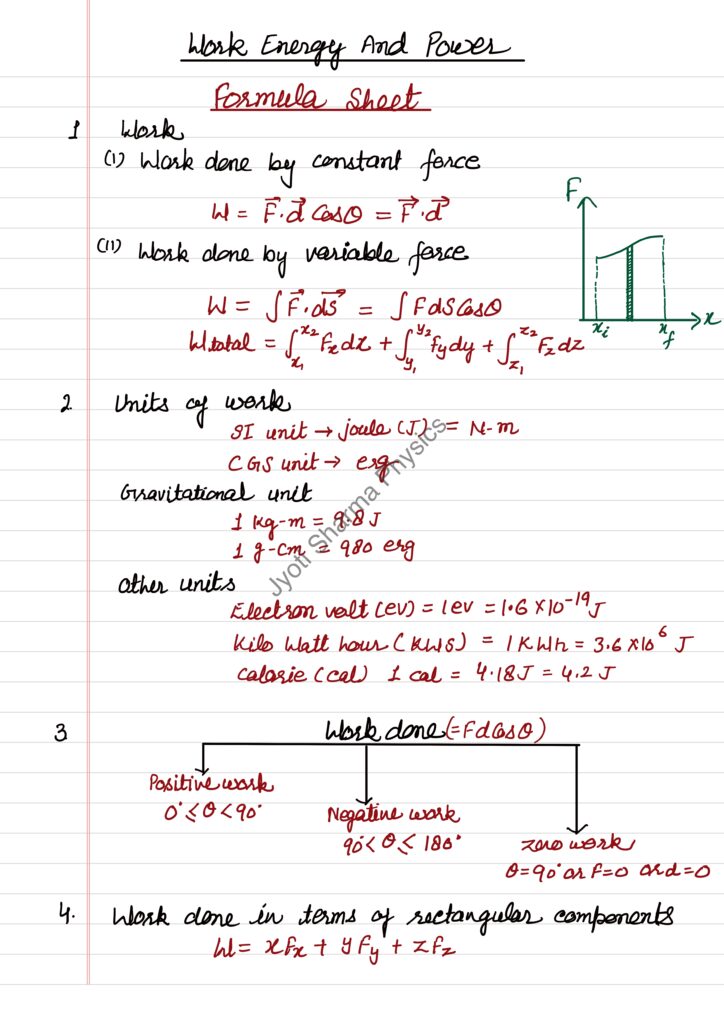 Work Energy And Power
Formula Sheet
1 Work
(I) Work done by constant force
W = F⃗·d⃗ Cosθ = F⃗·d⃗
(II) Work done by variable force
W = ∫F⃗·dS⃗ = ∫FdSCosθ
Wtotal = ∫x₁^x₂ Fxdx + ∫y₁^y₂ Fydy + ∫z₁^z₂ Fzdz
F
x
xi
xf
2 Units of work
SI unit → joule (J) = N-m
CGS unit → erg
Gravitational unit
1 kg-m = 9.8 J
1 g-cm = 980 erg
Other units
Electron volt (ev) = 1ev = 1.6 × 10⁻¹⁹ J
Kilo Watt hour (KWS) = 1 KWh = 3.6 × 10⁶ J
Calorie (cal) 1 cal = 4.18 J = 4.2 J
Jyoti Sharma Physics
3 Work done (=FdCosθ)
Positive work
0° ≤ θ < 90°
Negative work
90° < θ ≤ 180°
zero work
θ = 90° or F=0 or d=0
4. Work done in terms of rectangular components
W = xFx + yFy + zFz